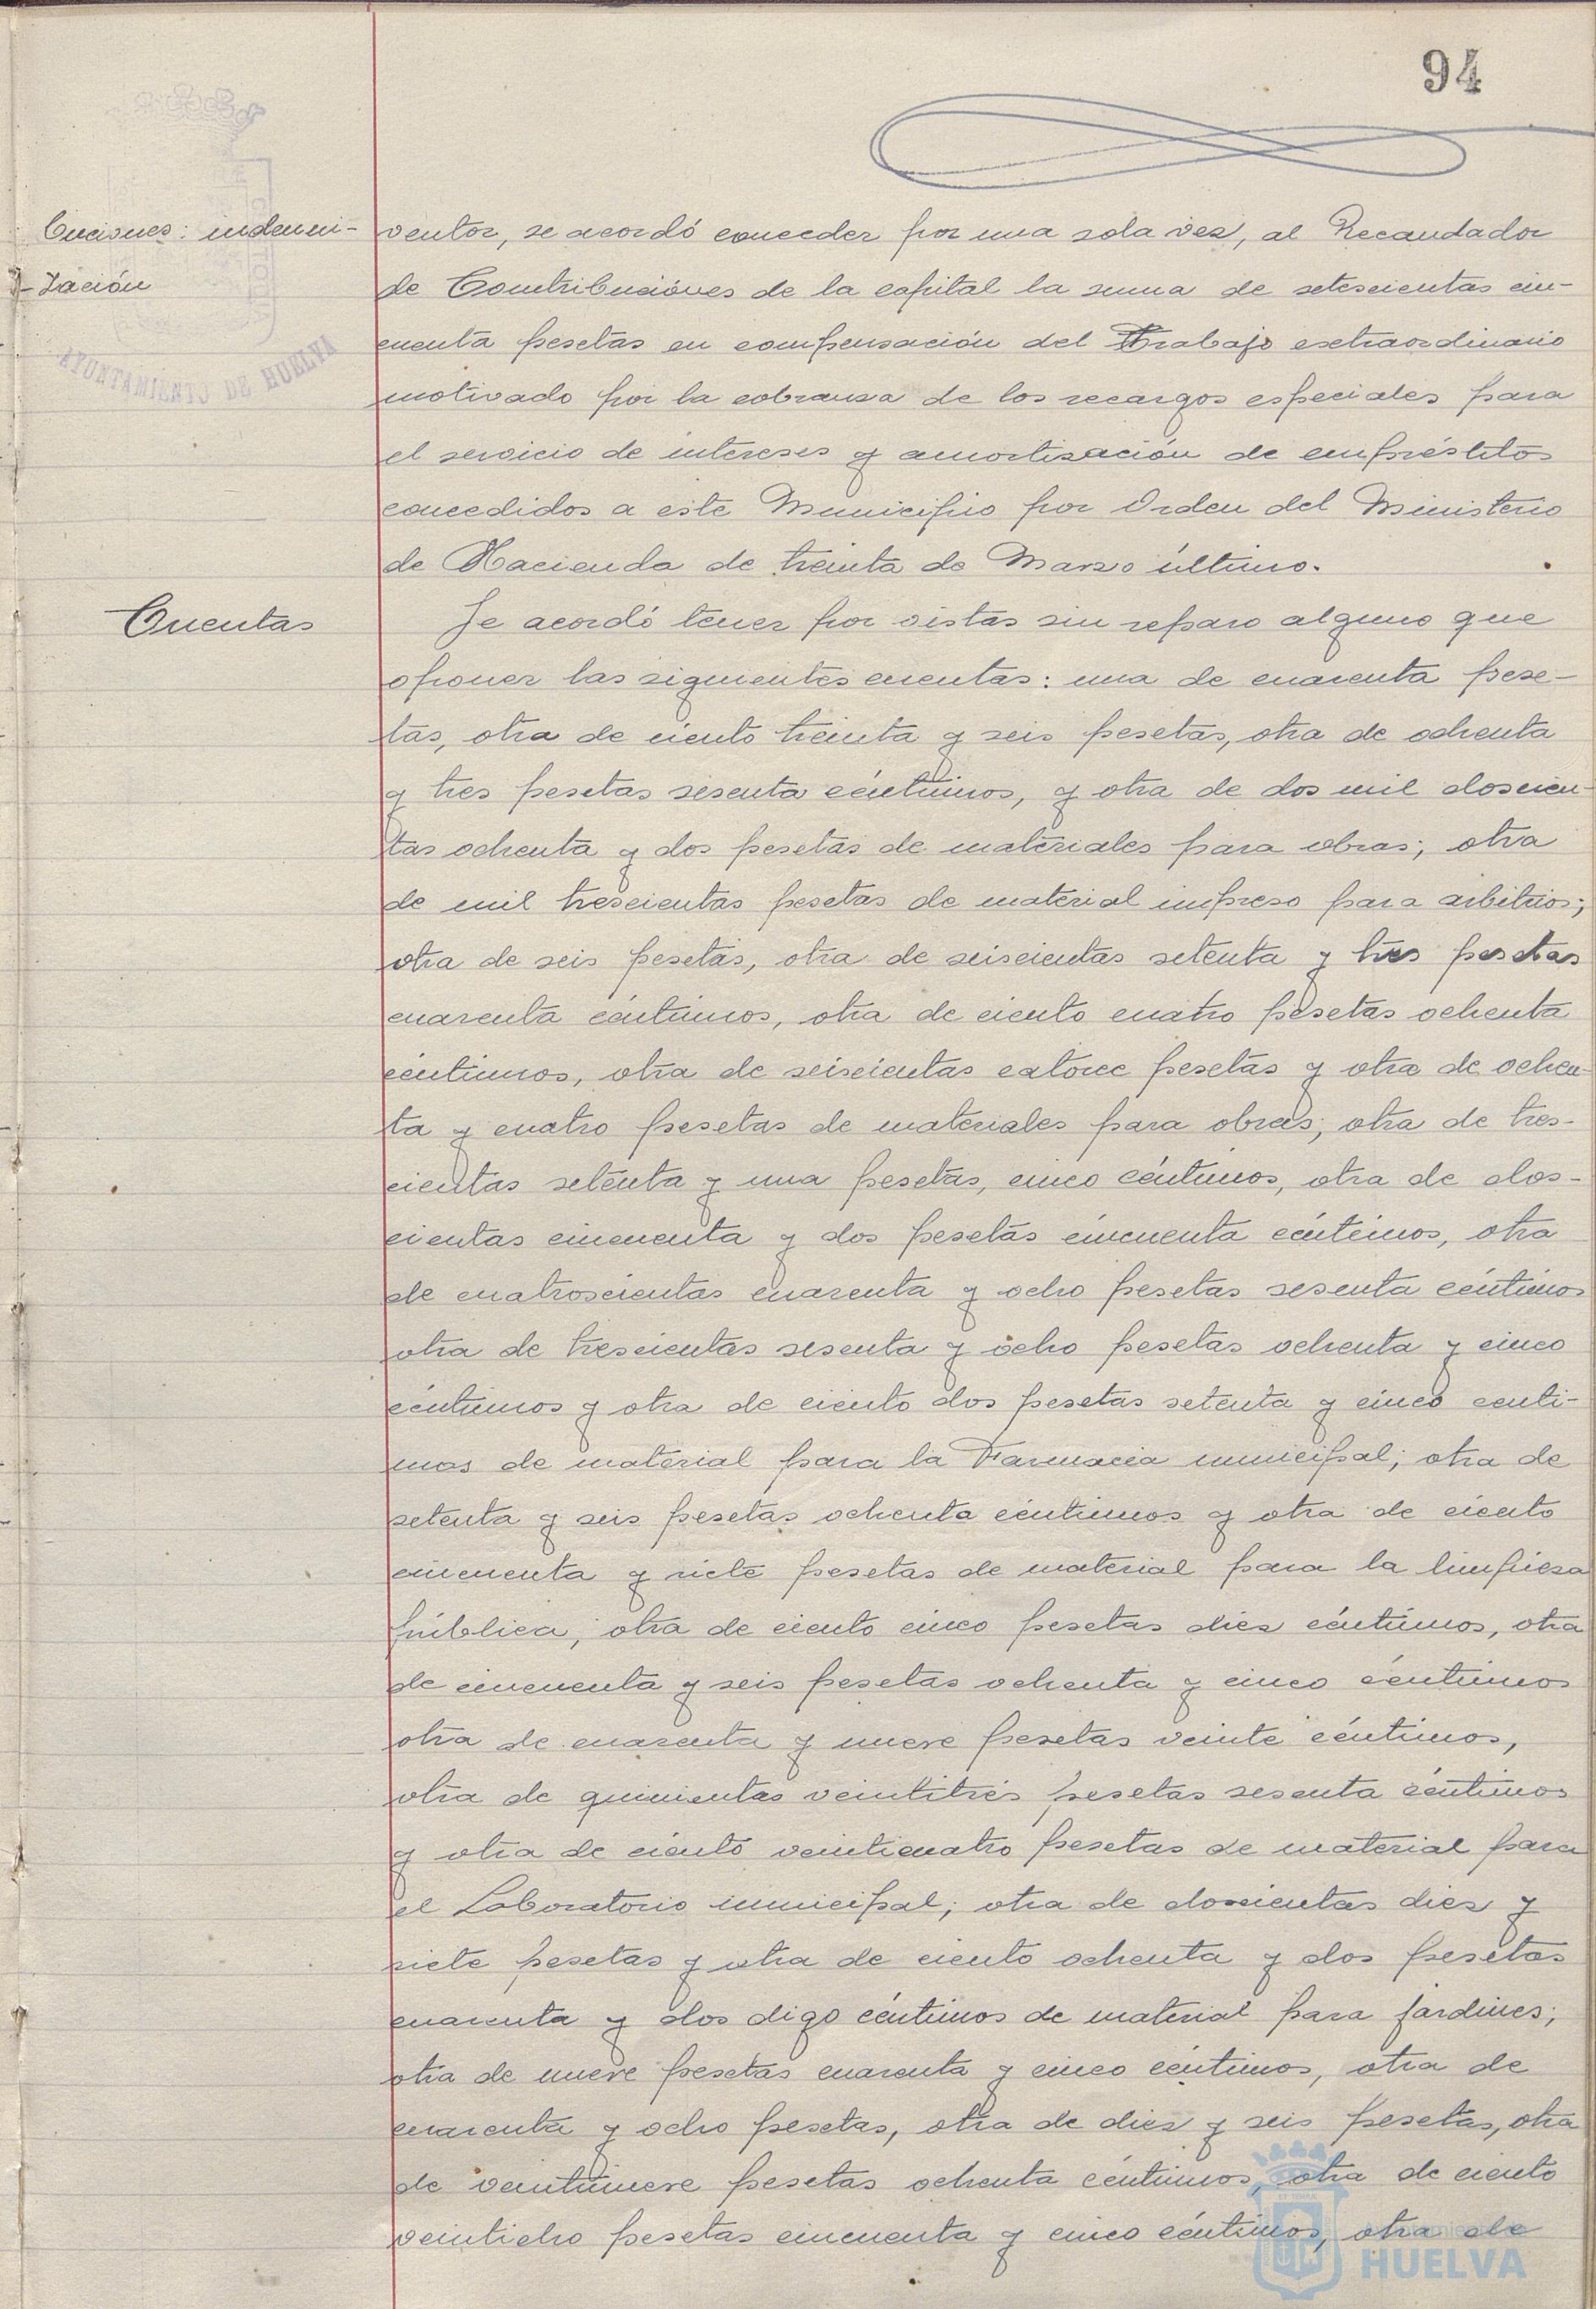 94
buciones: indemni-
zación
AYUNTAMIENTO DE HUELVA
ventor, se acordó conceder por una sola vez, al Recaudador
de Contribuciónes de la capital la suma de setescientas cin-
cuenta pesetas en compensación del Trabajo extraordinario
motivado por la cobranza de los recargos especiales para
el servicio de intereses y amortización de empréstitos
concedidos a este Municipio por Orden del Ministerio
de Hacienda de treinta de Marzo último.
Cuentas
Se acordó tener por vistas sin reparo alguno que
oponer las siguientes cuentas: una de cuarenta pese-
tas, otra de ciento treinta y seis pesetas, otra de ochenta
y tres pesetas sesenta céntimos, y otra de dos mil doscien-
tas ochenta y dos pesetas de materiales para obras; otra
de mil trescientas pesetas de material impreso para arbitrios;
otra de seis pesetas, otra de seiscientas setenta y tres pesetas
cuarenta céntimos, otra de ciento cuatro pesetas ochenta
céntimos, otra de seiscientas catorce pesetas y otra de ochen-
ta y cuatro pesetas de materiales para obras; otra de tres-
cientas setenta y una pesetas, cinco céntimos, otra de dos-
cientas cincuenta y dos pesetas cincuenta céntimos, otra
de cuatroscientas cuarenta y ocho pesetas sesenta céntimos
otra de trescientas sesenta y ocho pesetas ochenta y cinco
céntimos y otra de ciento dos pesetas setenta y cinco centi-
mos de material para la Farmacia municipal; otra de
setenta y seis pesetas ochenta céntimos y otra de ciento
cincuenta y siete pesetas de material para la limpieza
pública; otra de ciento cinco pesetas diez céntimos, otra
de cincuenta y seis pesetas ochenta y cinco céntimos
otra de cuarenta y nueve pesetas veinte céntimos,
otra de quinientas veintitrés pesetas sesenta céntimos
y otra de ciento veinticuatro pesetas de material para
el Laboratorio municipal; otra de doscientas diez y
siete pesetas y otra de ciento ochenta y dos pesetas
cuarenta y dos digo céntimos de material para jardines;
otra de nueve pesetas cuarenta y cinco céntimos, otra de
cuarenta y ocho pesetas, otra de diez y seis pesetas, otra
de veintinueve pesetas ochenta céntimos, otra de ciento
veintiocho pesetas cincuenta y cinco céntimos, otra de
HUELVA